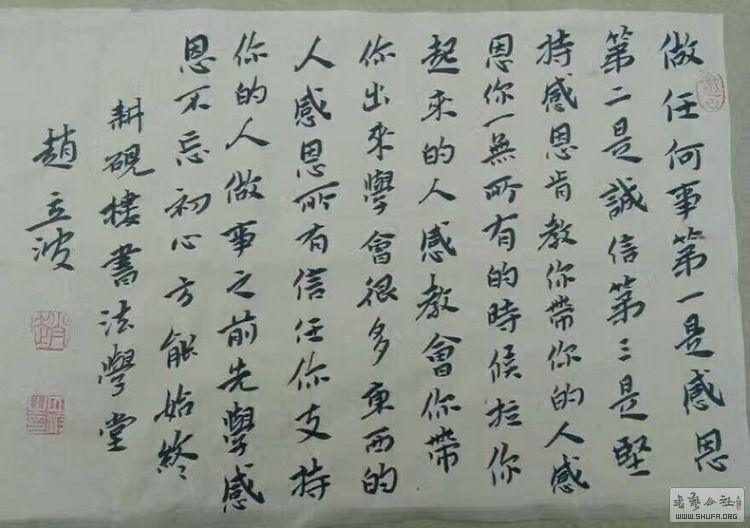 做任何事第一是感恩
第二是誠信第三是堅
持感恩肯教你帶你的人感
恩你一無所有的時候拉你
起來的人感教會你帶
你出來學會很多東西的
人感恩所有信任你支持
你的人做事之前先學感
恩不忘初心方能始終
耕硯樓書法學堂
趙立波
書藝公社
WWW.SHUFA.ORG